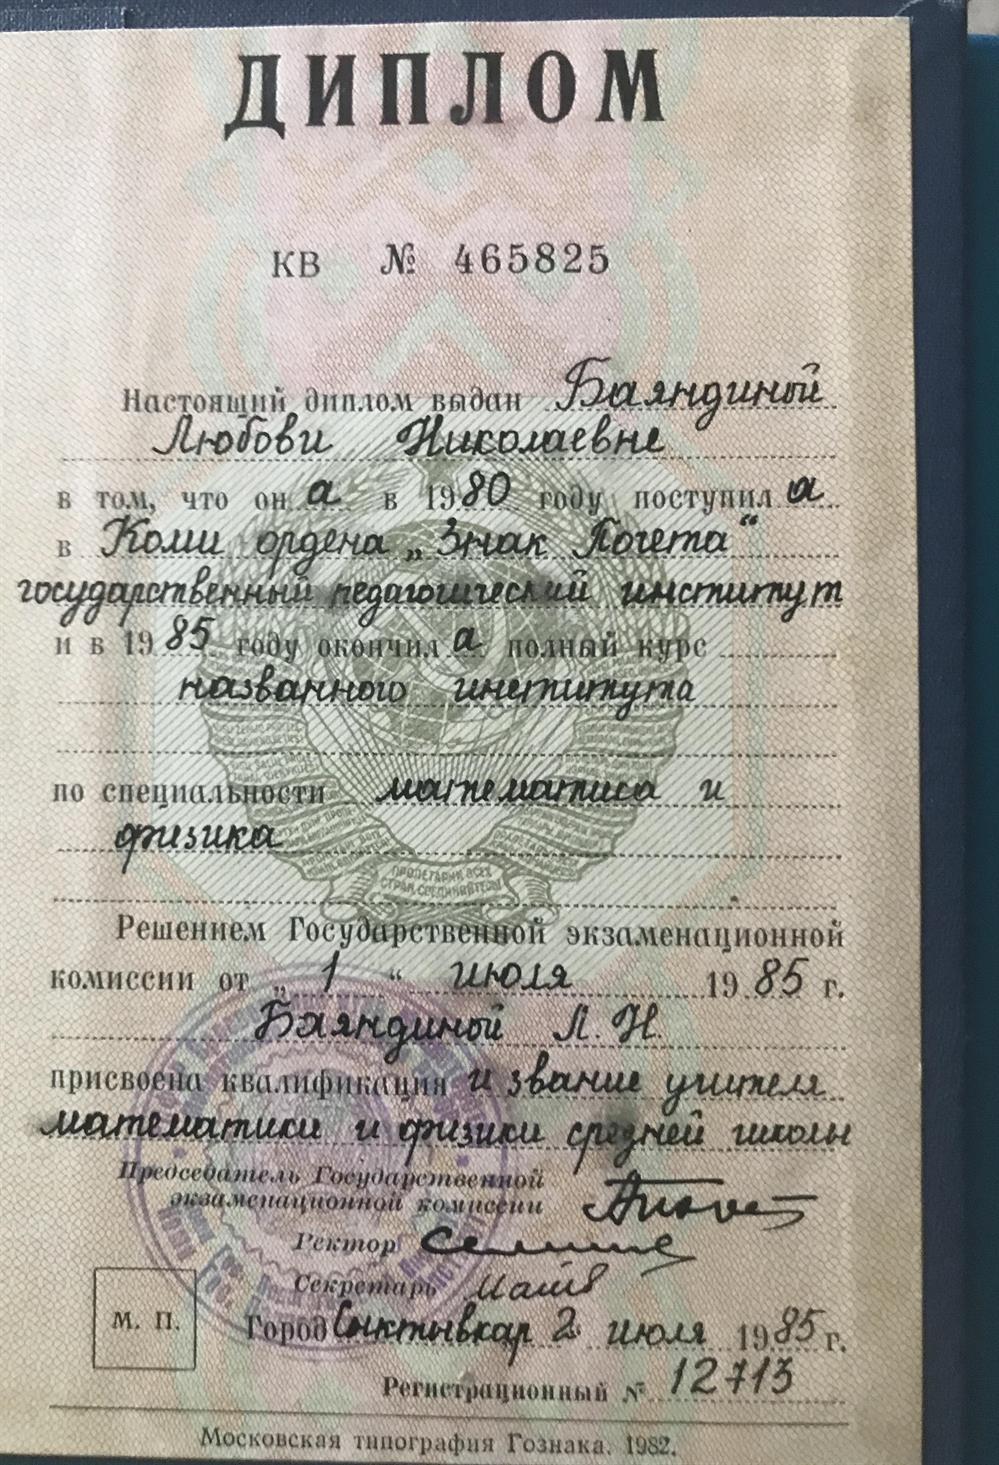 ДИПЛОМ
КВ № 465825
Настоящий диплом выдан Баяндиной
Любови Николаевне
в том, что он а в 1980 году поступил а
в Коми ордена „Знак Почета“
государственный педагогический институт
и в 1985 году окончил а полный курс
названного института
по специальности математика и
физика
ПРОЛЕТАРИИ ВСЕХ
СТРАН, СОЕДИНЯЙТЕСЬ!
Решением Государственной экзаменационной
комиссии от „ 1 “ июля 1985 г.
Баяндиной Л. Н.
присвоена квалификация и звание учителя
математики и физики средней школы
Председатель Государственной
экзаменационной комиссии
Ректор
Секретарь
М. П.
Город Сыктывкар 2 июля 1985 г.
Регистрационный № 12713
Московская типография Гознака. 1982.